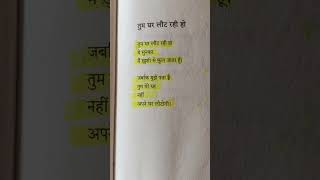 तुम घर लौट रही हो
तुम घर लौट रही हो
ये सुनकर
मैं ख़ुशी से फूल जाता हूँ।
जबकि मुझे पता है
तुम मेरे घर
नहीं
अपने घर लौटोगी।